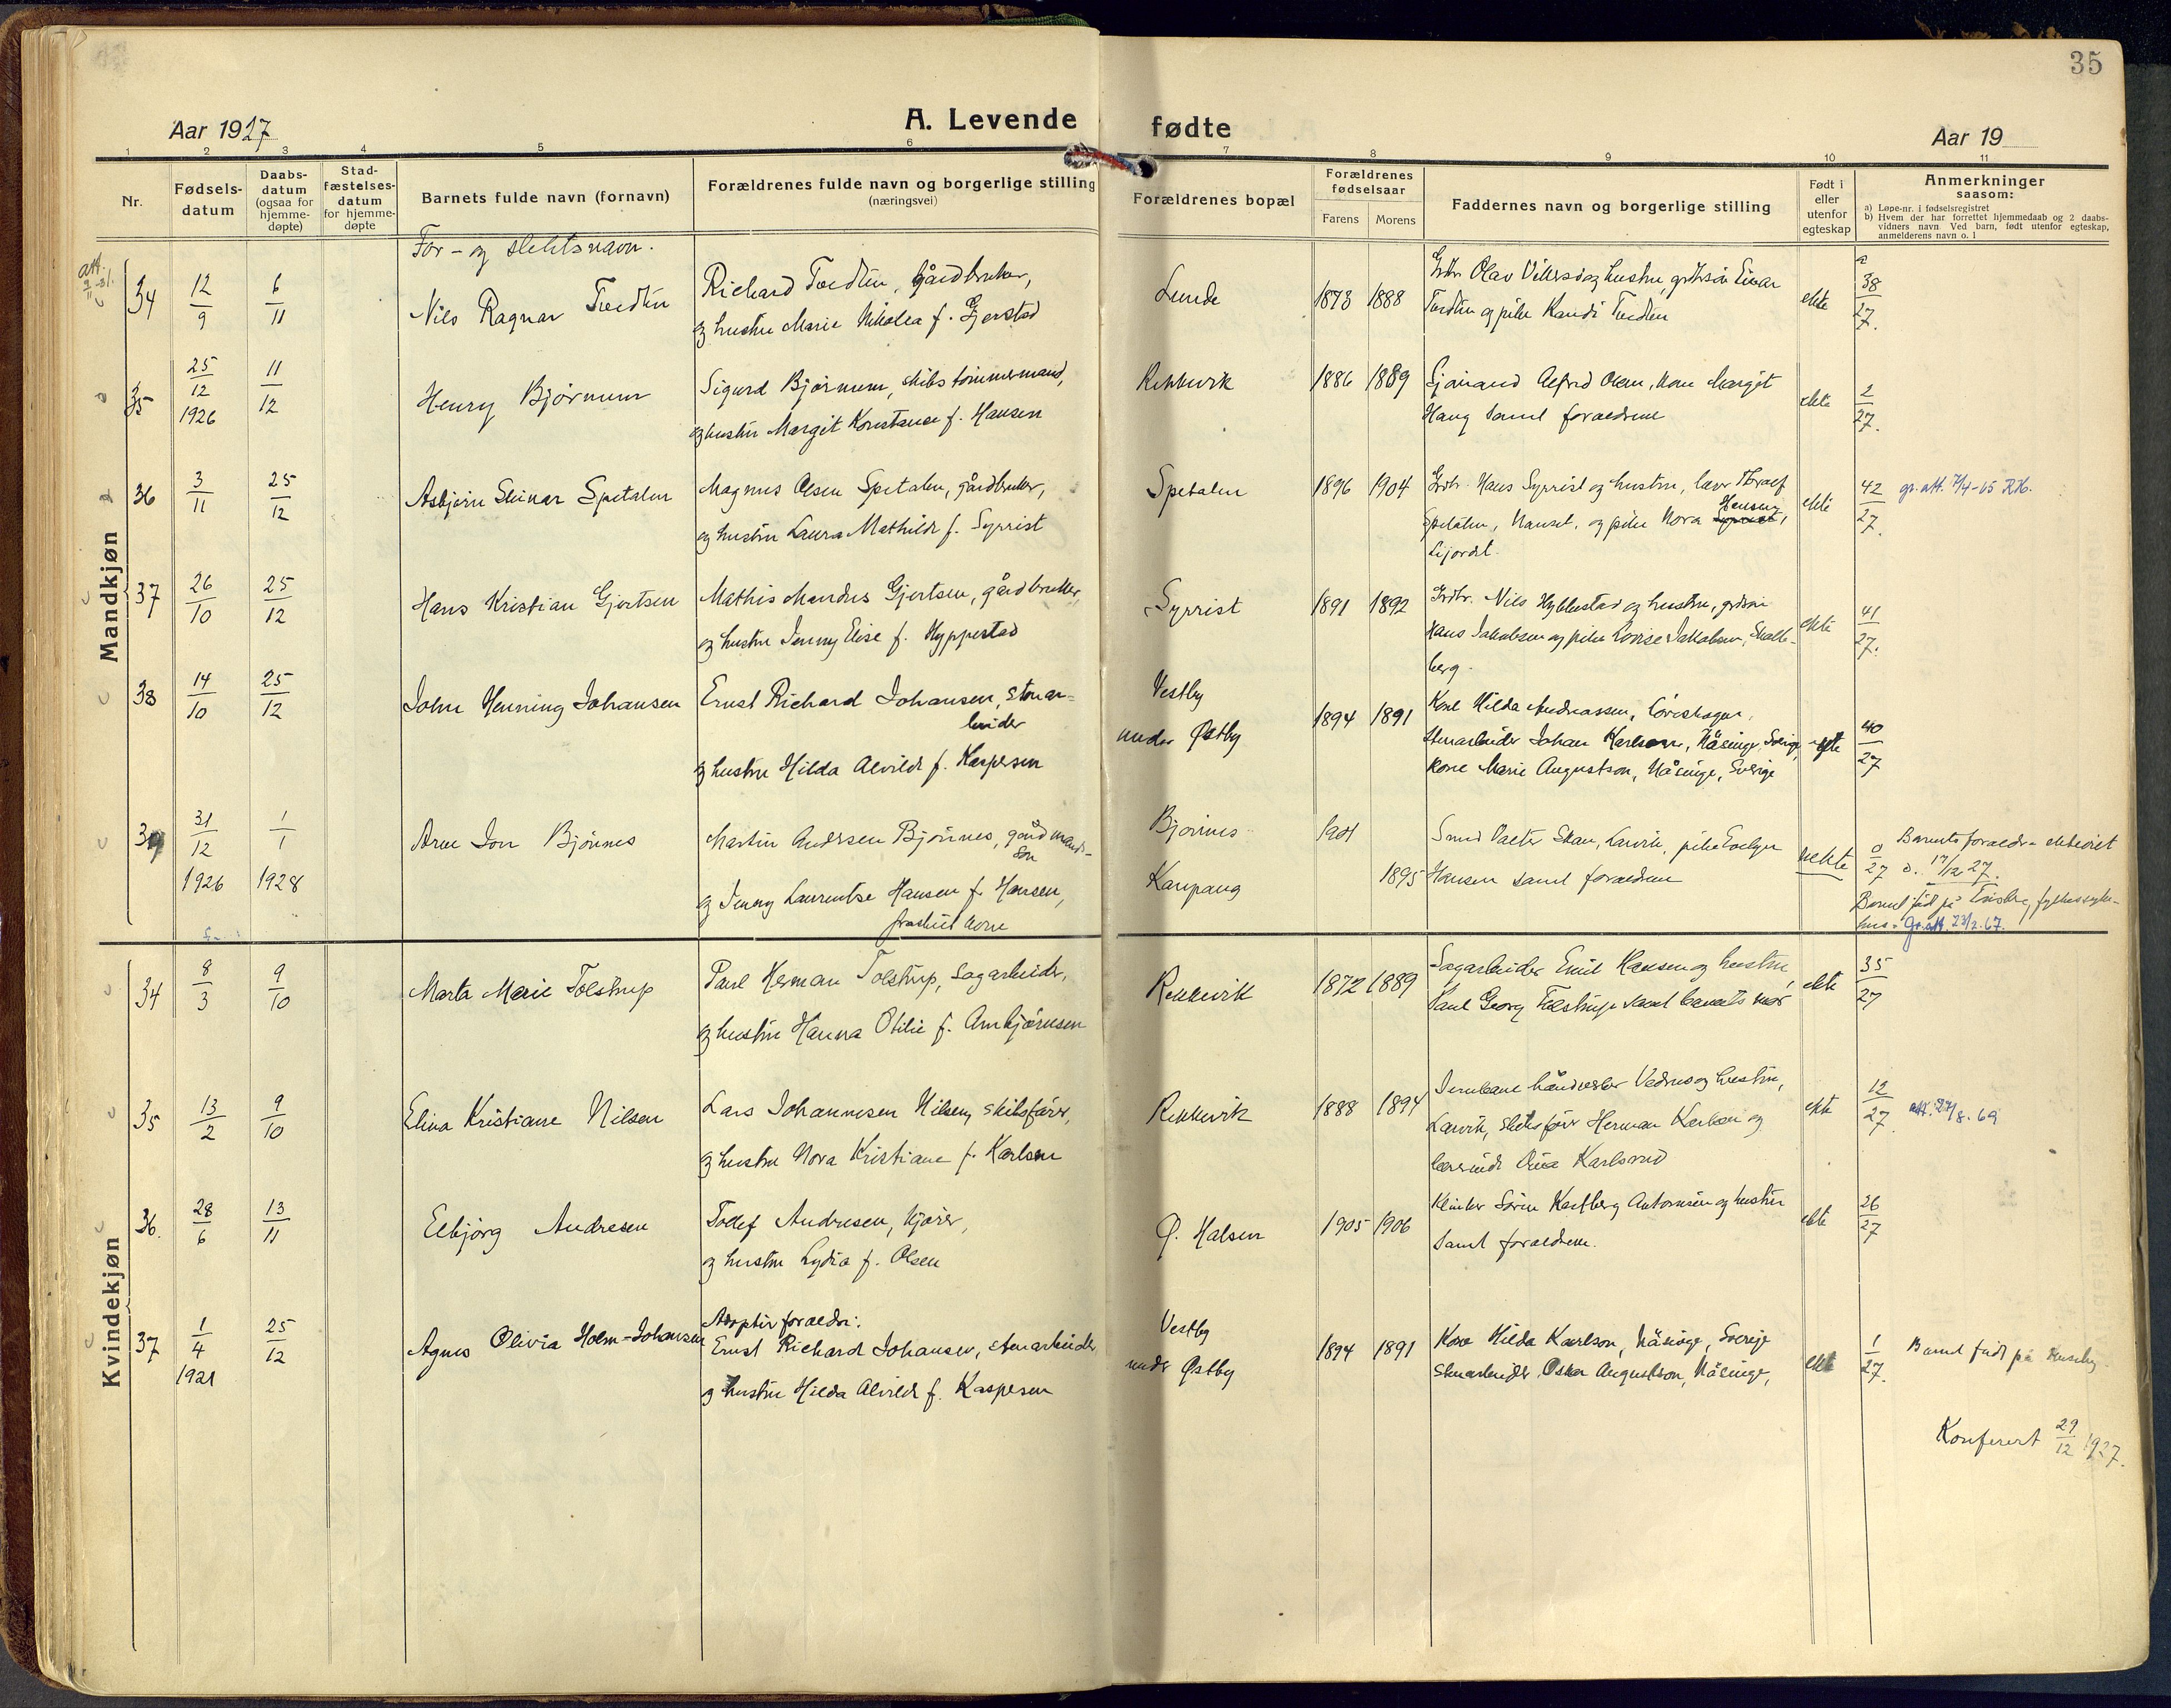 35
Aar 1927
A. Levende fødte
Aar 19
1 2 3 4 5 6 7 8 9 10 11
Nr.
Fødsels-
datum
Daabs-
datum
(ogsaa for
hjemme-
døpte)
Stad-
fæstelses-
datum
for hjemme-
døpte
Barnets fulde navn (fornavn)
Forældrenes fulde navn og borgerlige stilling
(næringsvei)
Forældrenes bopæl
Forældrenes
fødselsaar
Farens Morens
Faddernes navn og borgerlige stilling
Født i
eller
utenfor
egteskap
Anmerkninger
saasom:
a) Løpe-nr. i fødselsregistret
b) Hvem der har forrettet hjemmedaab og 2 daabs-
vidners navn. Ved barn, født utenfor egteskap,
anmelderens navn o. l
For- og slektsnavn.
Mandkjøn
34 12/9 6/11 Nils Ragnar Tvedten
Richard Tvedten, gårdbruker,
og hustru Marie Nikolea f. Gjerstad
Lunde 1873 1888
Grdbr. Olav Vittersø og hustru, grdbrsøn Einar
Tvedten og pike Kandi Tvedten
ekte 38/27.
35 25/12 1926 11/12 Henry Bjørnum
Sigurd Bjørnum, skibstømmermand,
og hustru Margit Konstance f. Hansen
Rekkevik 1886 1889
Sjømand Alfred Olsen, kone Margit
Haug samt forældrene
ekte 2/27.
36 3/11 25/12 Asbjørn Steinar Spetalen
Magnus Olsen Spetalen, gårdbruker,
og hustru Laura Mathilde f. Syrrist
Spetalen 1896 1904
Grdbr. Hans Syrrist og hustru,
Spetalen, Nanset, og pike Nora Hansen,
ekte 42/27. gr. att. 7/4-65 RH.
37 26/10 25/12 Hans Kristian Gjertsen
Mathis Gjertsen, gårdbruker,
og hustru Jenny Elise f. Hyppestad
Syrrist 1891 1892
Grdbr. Nils Hybbestad og hustru, grdbrsøn
Hans Jakobsen og pike Lovise Jakobsen, Skalle-
berg.
ekte 41/27.
38 14/10 25/12 John Henning Johansen
Ernst Richard Johansen, stenar-
beider
og hustru Hilda Alvilde f. Kaspersen
Vestby
under Østby 1894 1891
Kone Hilda Andreassen,
Stenarbeider Johan Karlson, Näsinge, Sverige,
kone Marie Augustson, Näsinge, Sverige
ekte 40/27
39 31/12 1926 1/1 1928 Arne Jon Bjønnes
Martin Andersen Bjønnes, gårdmands-
søn
og Jenny Laurentse Hansen f. Hansen,
fraskilt kone
Bjønnes 1901
Kaupang 1895
Smed Valter Skau, Larvik, pike Evelyn
Hansen samt forældrene
uekte 0/27 Barnets forældre ekteviet
d. 17/12 27.
Barnet født på Tønsberg fylkessyke-
hus. Gr. att. 23/2.67.
Kvindekjøn
34 8/3 9/10 Marta Marie Tolstrup
Paul Herman Tolstrup, sagarbeider,
og hustru Hanna Otilie f. Arnbjørnsen
Rekkevik 1872 1889
Sagarbeider Emil Hansen og hustru,
Paul Georg Tolstrup samt barnets mor
ekte 35/27
35 13/2 9/10 Elina Kristiane Nilsen
Lars Johannesen Nilsen, skibsfører,
og hustru Nora Kristiane f. Karlsen
Rekkevik 1888 1894
Jernbane håndverker og hustru,
Larvik, skibsfører Herman Karlsen og
ekte 12/27 att. 27/8.69
36. 28/6 13/11 Elbjørg Andresen
Tollef Andresen, kjører,
og hustru Lydia f. Olsen
Ø. Halsen 1905 1906
Søren Kastberg Antonsen og hustru
samt forældrene.
ekte 26/27
37 1/4 1921 25/12 Agnes Olivia Holm-Johansen
Adoptivforældre:
Ernst Richard Johansen, stenarbeider,
og hustru Hilda Alvilde f. Kaspersen
Vestby
under Østby 1894 1891
Kone Hilda Karlson, Näsinge, Sverige
stenarbeider Oskar Augustson, Näsinge,
ekte 1/27. Barnet født på Huseby.
Konferert 29/12 1927.